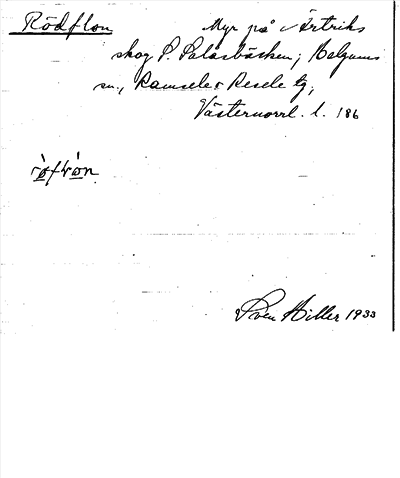 Rödflon Myr på Örtriks
skog S. Salasbäcken; Bodums
sn, Ramsele o Resele tg,
Västernorrl. l. 186
Sven Hiller 1933